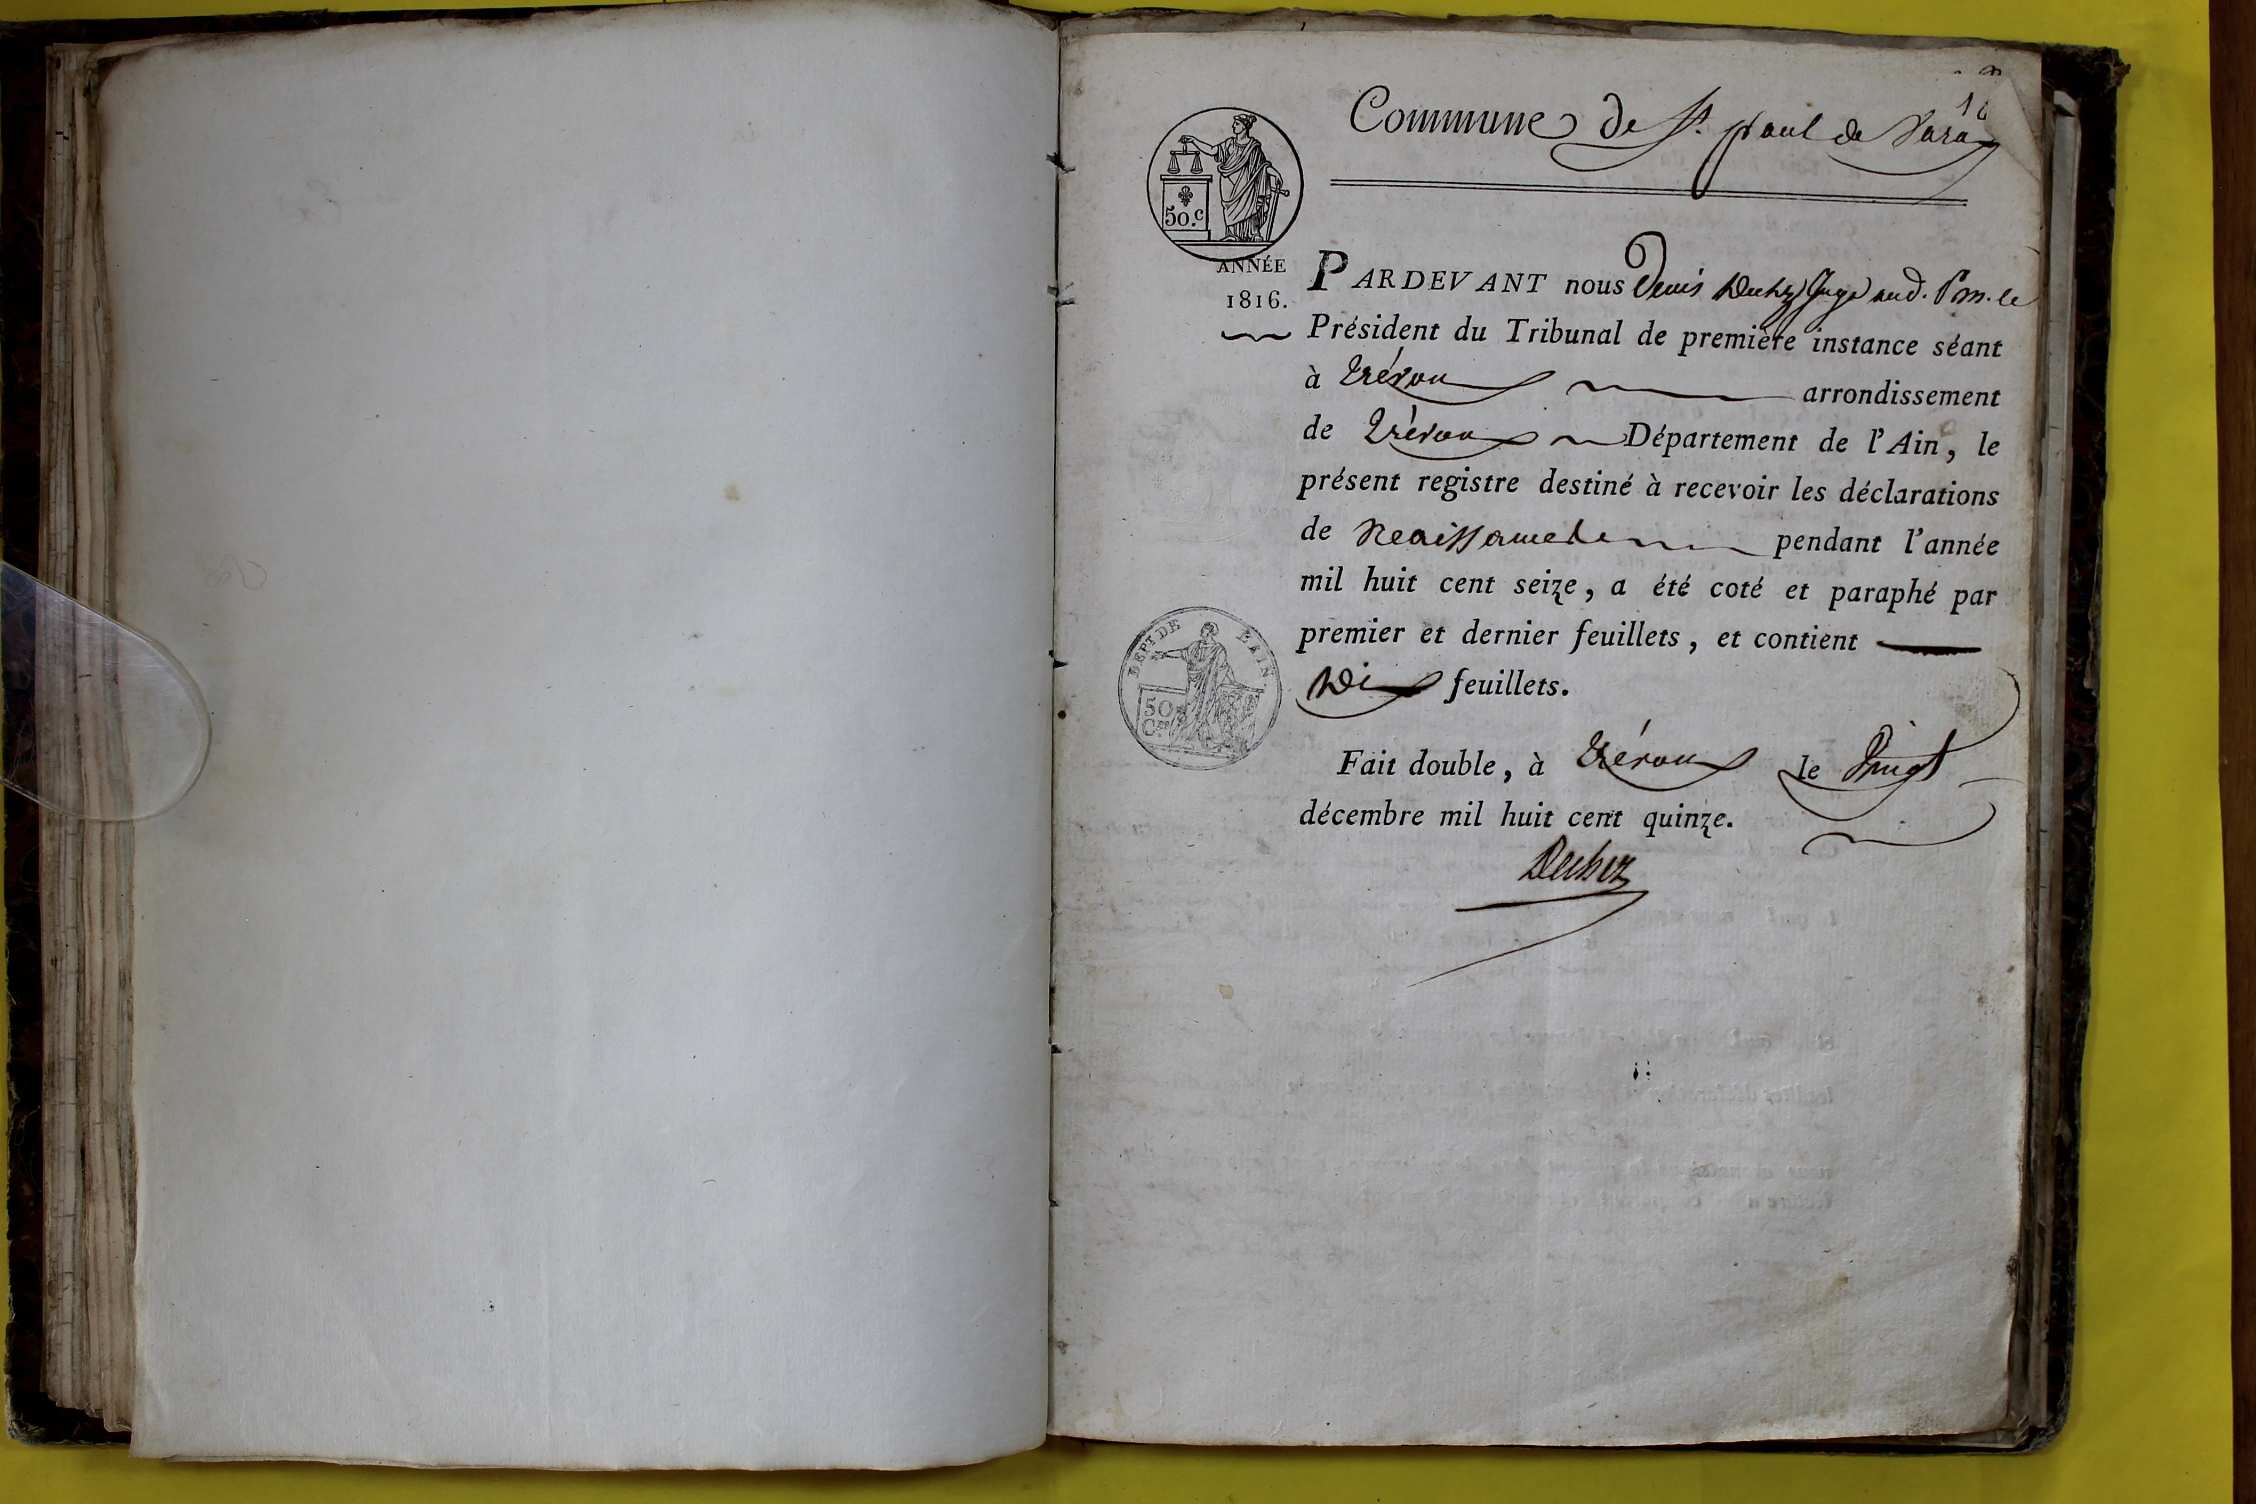 Commune de St. paul de Varax
50.c
ANNÉE
1816.
PARDEVANT nous Denis Duchez Juge aud. Pour le
Président du Tribunal de première instance séant
à Trévoux arrondissement
de Trévoux Département de l'Ain, le
présent registre destiné à recevoir les déclarations
de Naissance pendant l'année
mil huit cent seize, a été coté et paraphé par
premier et dernier feuillets, et contient
Dix feuillets.
DEPT DE L'AIN.
50
Ces
Fait double, à Trévoux le Vingt
décembre mil huit cent quinze.